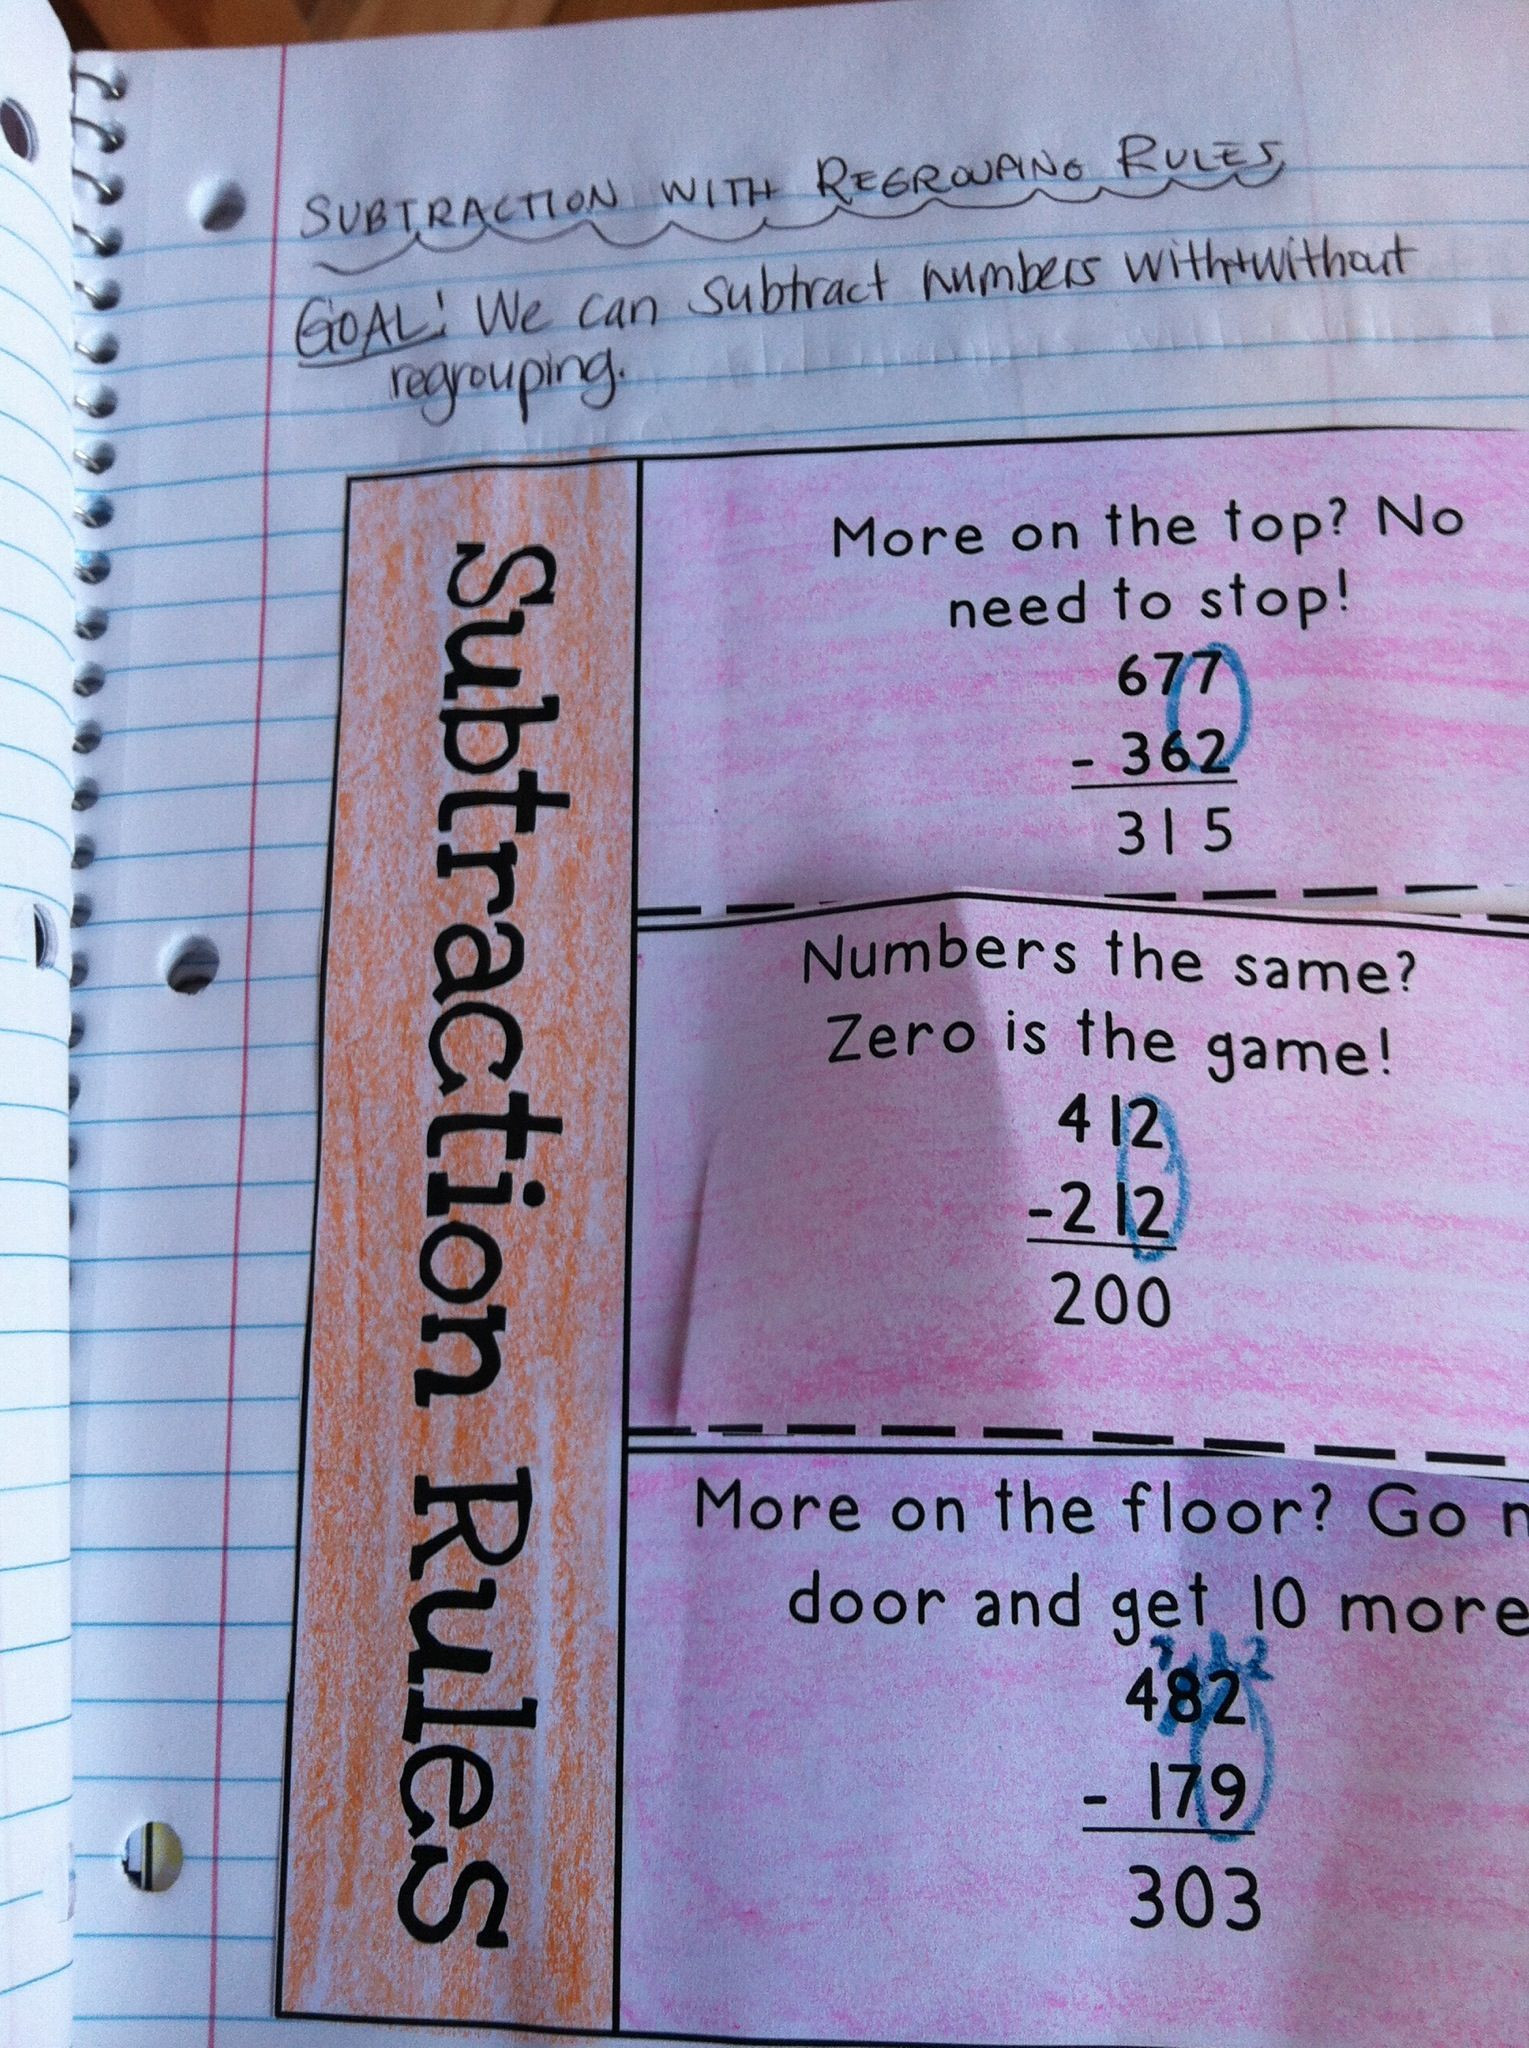 SUBTRACTION WITH REGROUPING RULES
GOAL: We can subtract numbers with+without
regrouping.
Subtraction Rules
More on the top? No
need to stop!
677
- 362
315
Numbers the same?
Zero is the game!
412
-212
200
More on the floor? Go
door and get 10 more
7 12
482
- 179
303